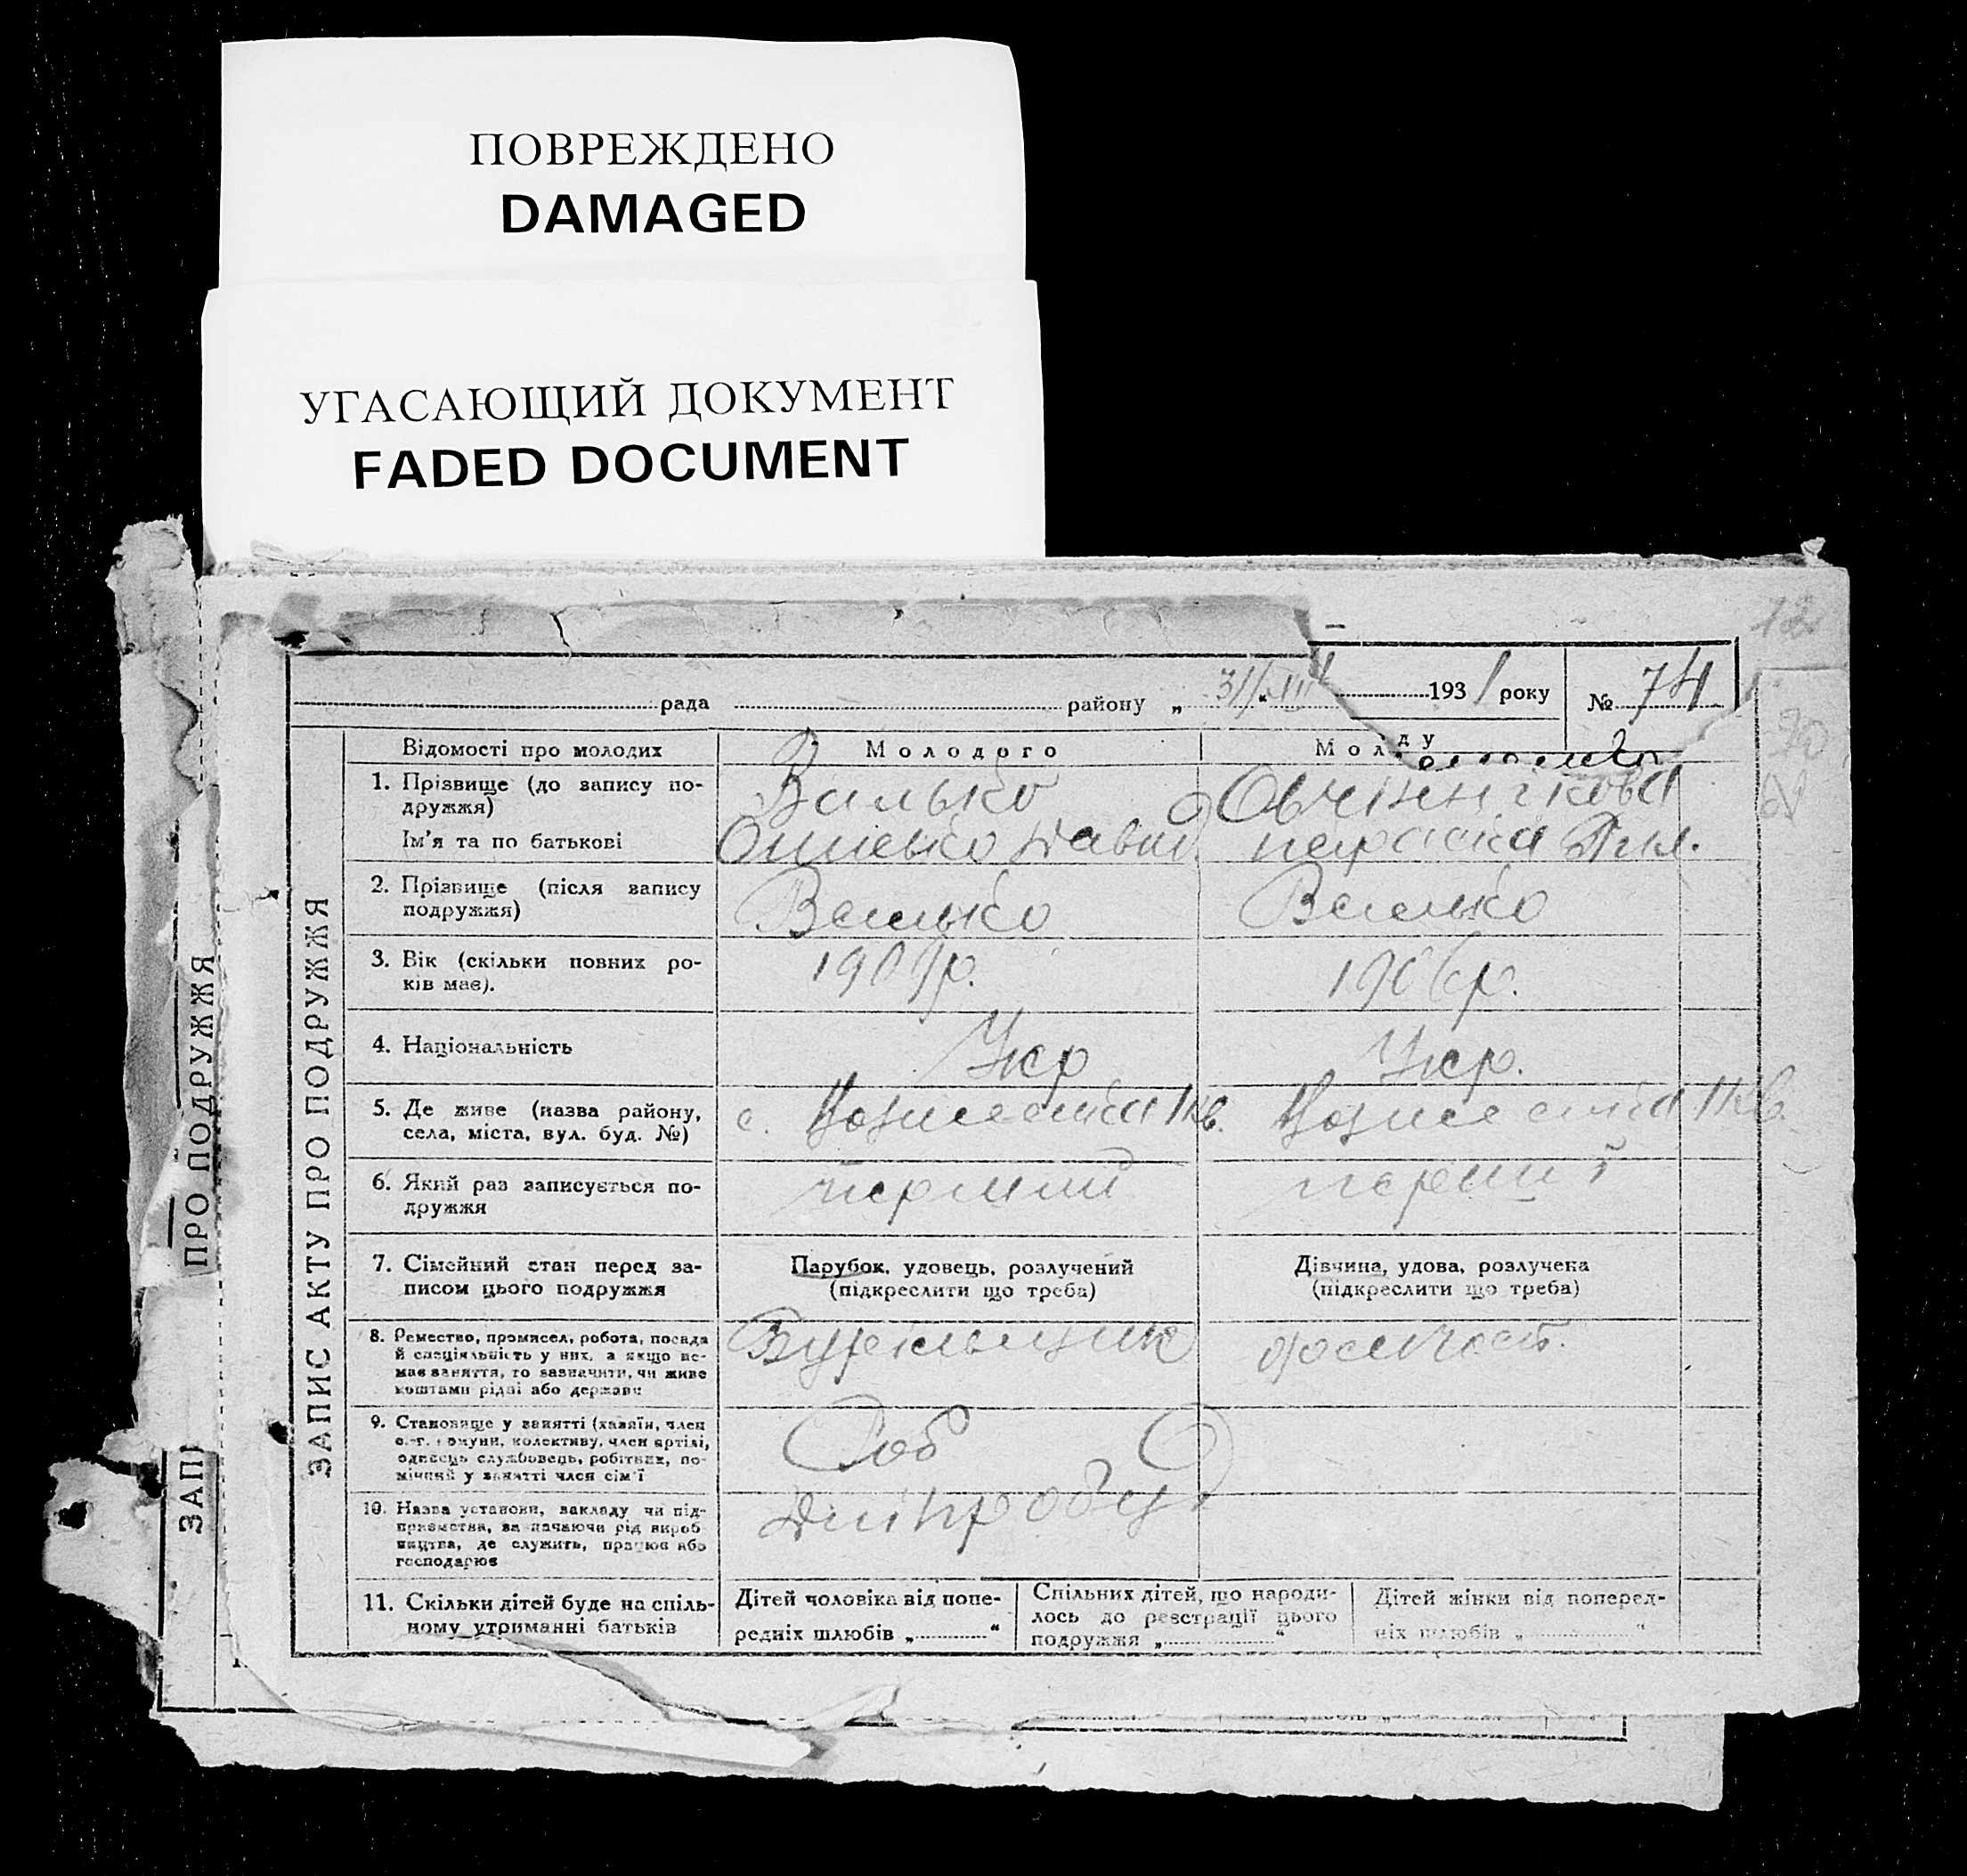 ПОВРЕЖДЕНО
DAMAGED
УГАСАЮЩИЙ ДОКУМЕНТ
FADED DOCUMENT
12
рада району „ 31/ “ III 1931 року № 74
ЗАПИС АКТУ ПРО ПОДРУЖЖЯ
ПРО ПОДРУЖЖЯ
ЗАПИ
Відомості про молодих
Молодого
Мол ду
1. Прізвище (до запису по-
дружжя)
Вилько
Овчіннікова
Ім'я та по батькові
Давид. параска
2. Прізвище (після запису
подружжя)
Велько
Велько
3. Вік (скільки повних ро-
ків має).
1909р.
1906р.
4. Національність
Укр
Укр.
5. Де живе (назва району,
села, міста, вул. буд. №)
с. Вознесенка
Вознесенка
6. Який раз записується по-
дружжя
перший
перший
7. Сімейний стан перед за-
писом цього подружжя
Парубок, удовець, розлучений
(підкреслити що треба)
Дівчина, удова, розлучена
(підкреслити що треба)
8. Ремество, промисел, робота, посада
й спеціяльність у них, а якщо не-
має заняття, то зазначити, чи живе
коштами рідні або держави
Бурильщик
9. Становище у занятті (хазяїн, член
с.-г. комуни, колективу, член артілі,
одинець службовець, робітник, по-
мічний у занятті член сім'ї
Роб
10. Назва установи, закладу чи під-
приємства, зазначаючи рід вироб
ництва, де служить, працює або
господарює
Дніпробуд
11. Скільки дітей буде на спіль-
ному утриманні батьків
Дітей чоловіка від попе-
редніх шлюбів „ “
Спільних дітей, що народи-
лось до реєстрації цього
подружжя „ “
Дітей жінки від поперед-
ніх шлюбів „ “